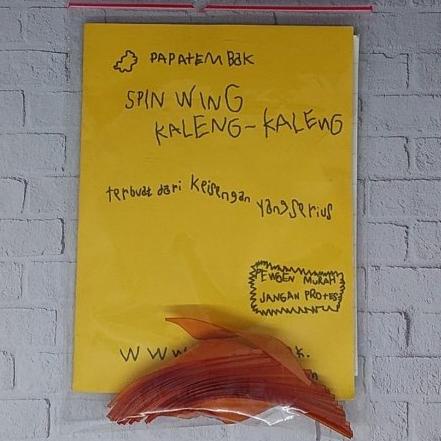 PAPATEMBAK
SPIN WING
KALENG-KALENG
terbuat dari Keisengan yang serius
PENGEN MURAH
JANGAN PROTES